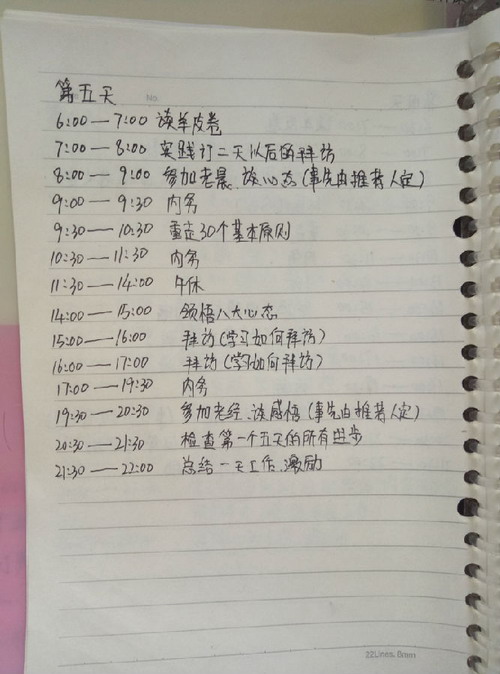 第五天
No.
6:00—7:00 读羊皮卷
7:00—8:00 实践订二天以后的拜访
8:00—9:00 参加老晨、谈心态(事先由推荐人定)
9:00—9:30 内务
9:30—10:30 重走30个基本原则
10:30—11:30 内务
11:30—14:00 午休
14:00—15:00 领悟八大心态
15:00—16:00 拜访(学习如何拜访)
16:00—17:00 拜访(学习如何拜访)
17:00—19:30 内务
19:30—20:30 参加老经、谈感悟(事先由推荐人定)
20:30—21:30 检查第一个五天的所有进步
21:30—22:00 总结一天工作、激励
22Lines, 8mm